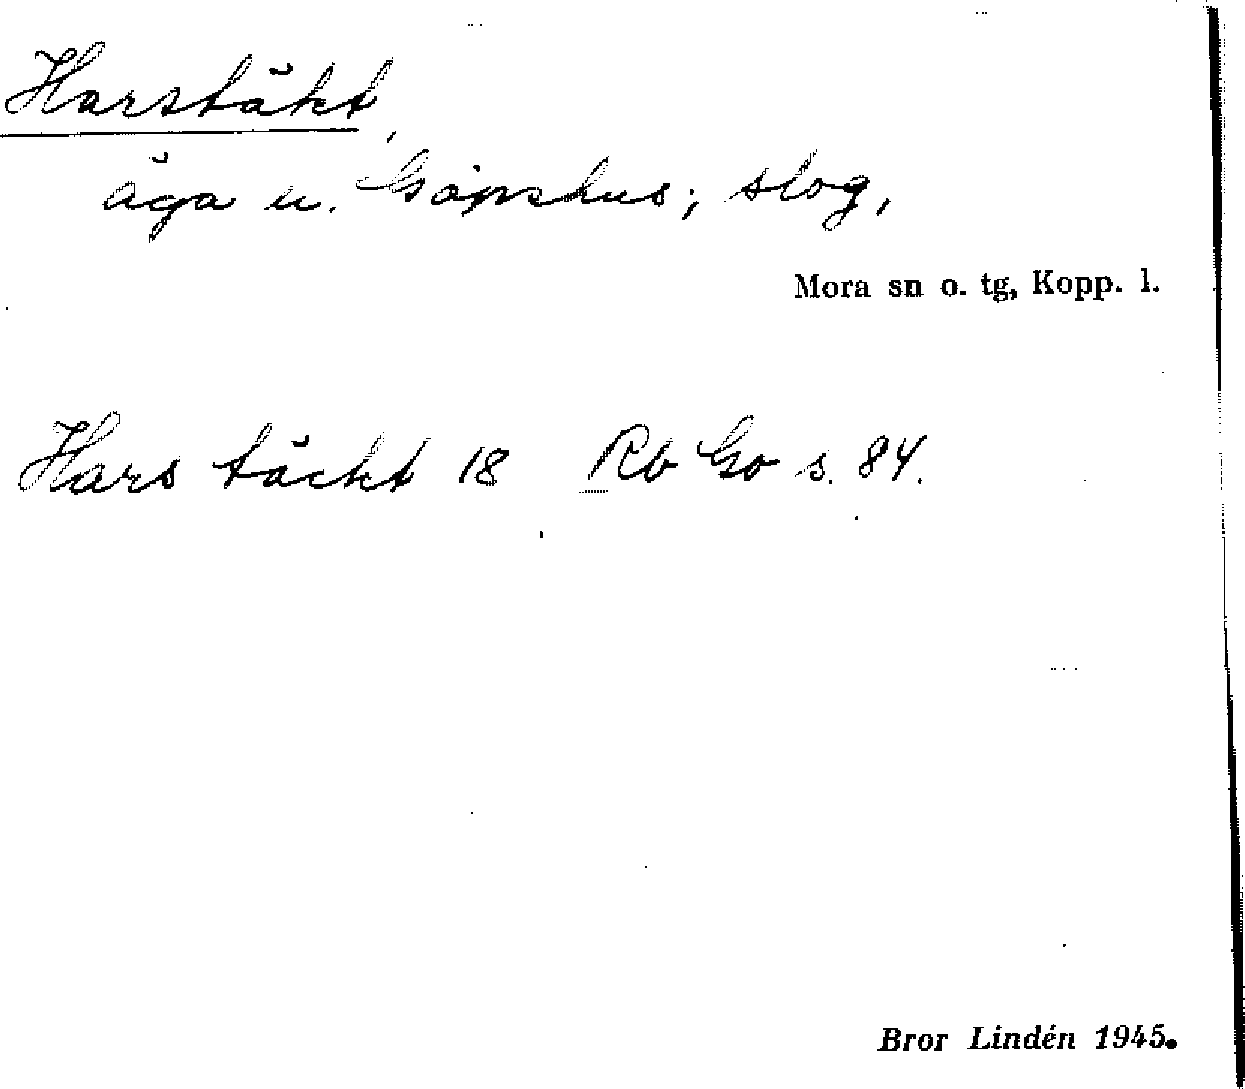 Harstäkt,
äga u. Gopshus; slog,
Mora sn o. tg, Kopp. l.
Hars täckt 18 Rb Go s. 84.
Bror Lindén 1945.